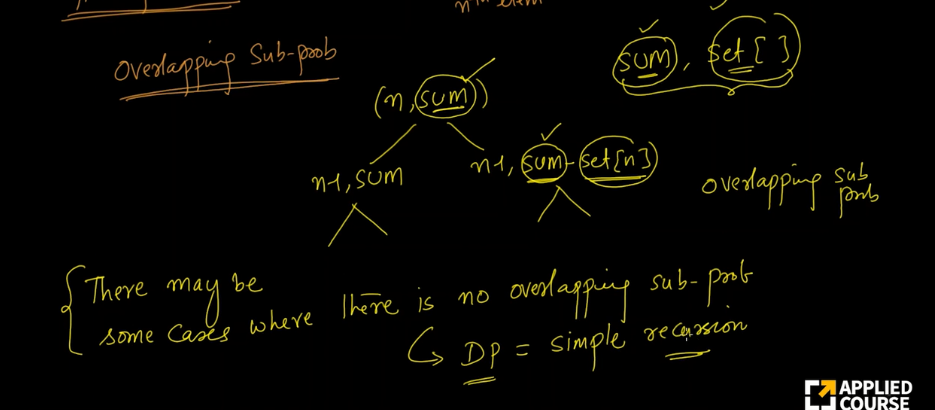 nth elem
Overlapping Sub-prob
sum, set[ ]
(n, sum)
n-1, sum
n-1, sum-set[n]
overlapping sub
prob
There may be
some cases where there is no overlapping sub-prob
DP = simple recursion
APPLIED
COURSE